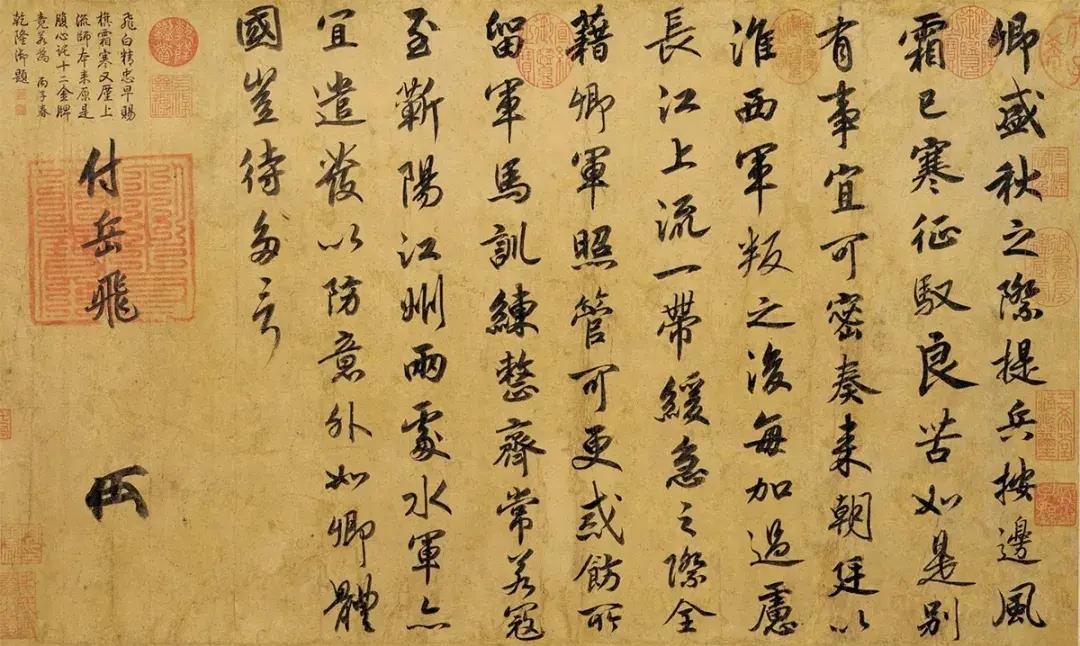 卿盛秋之際提兵按邊風
霜已寒征馭良苦如是別
有事宜可密奏来朝廷以
淮西軍叛之後每加過慮
長江上流一帶緩急之際全
藉卿軍照管可更戒飭所
留軍馬訓練整齊常若寇
至蘄陽江州兩處水軍亦
宜遣發以防意外如卿體
國豈待多言
付岳飛
飛白精忠早賜
旂霜寒又歷上
流師本来原是
腹心託十二金牌
竟若為 丙子春
乾隆御題